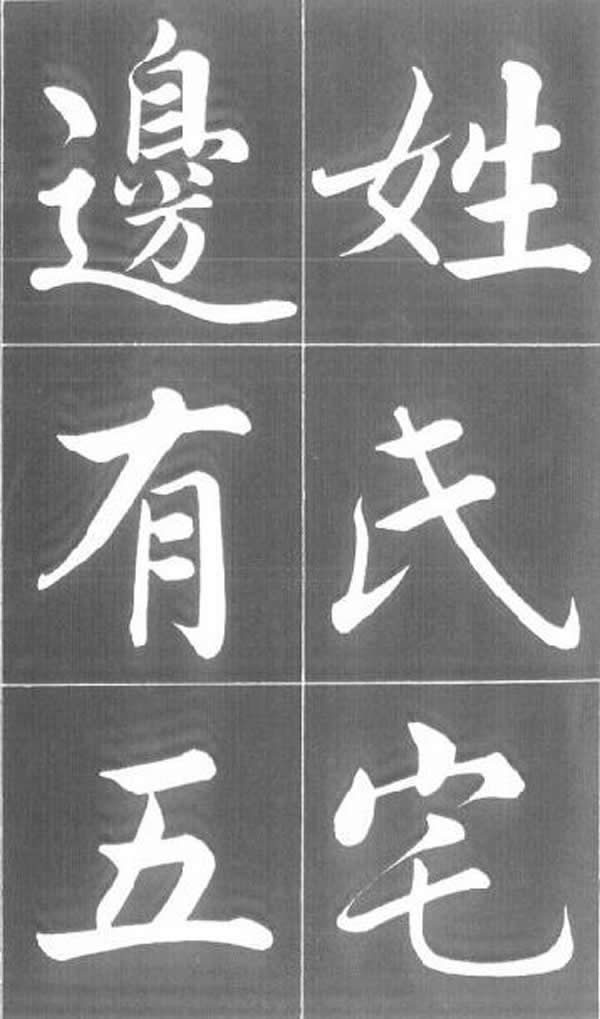 姓氏宅
邊有五